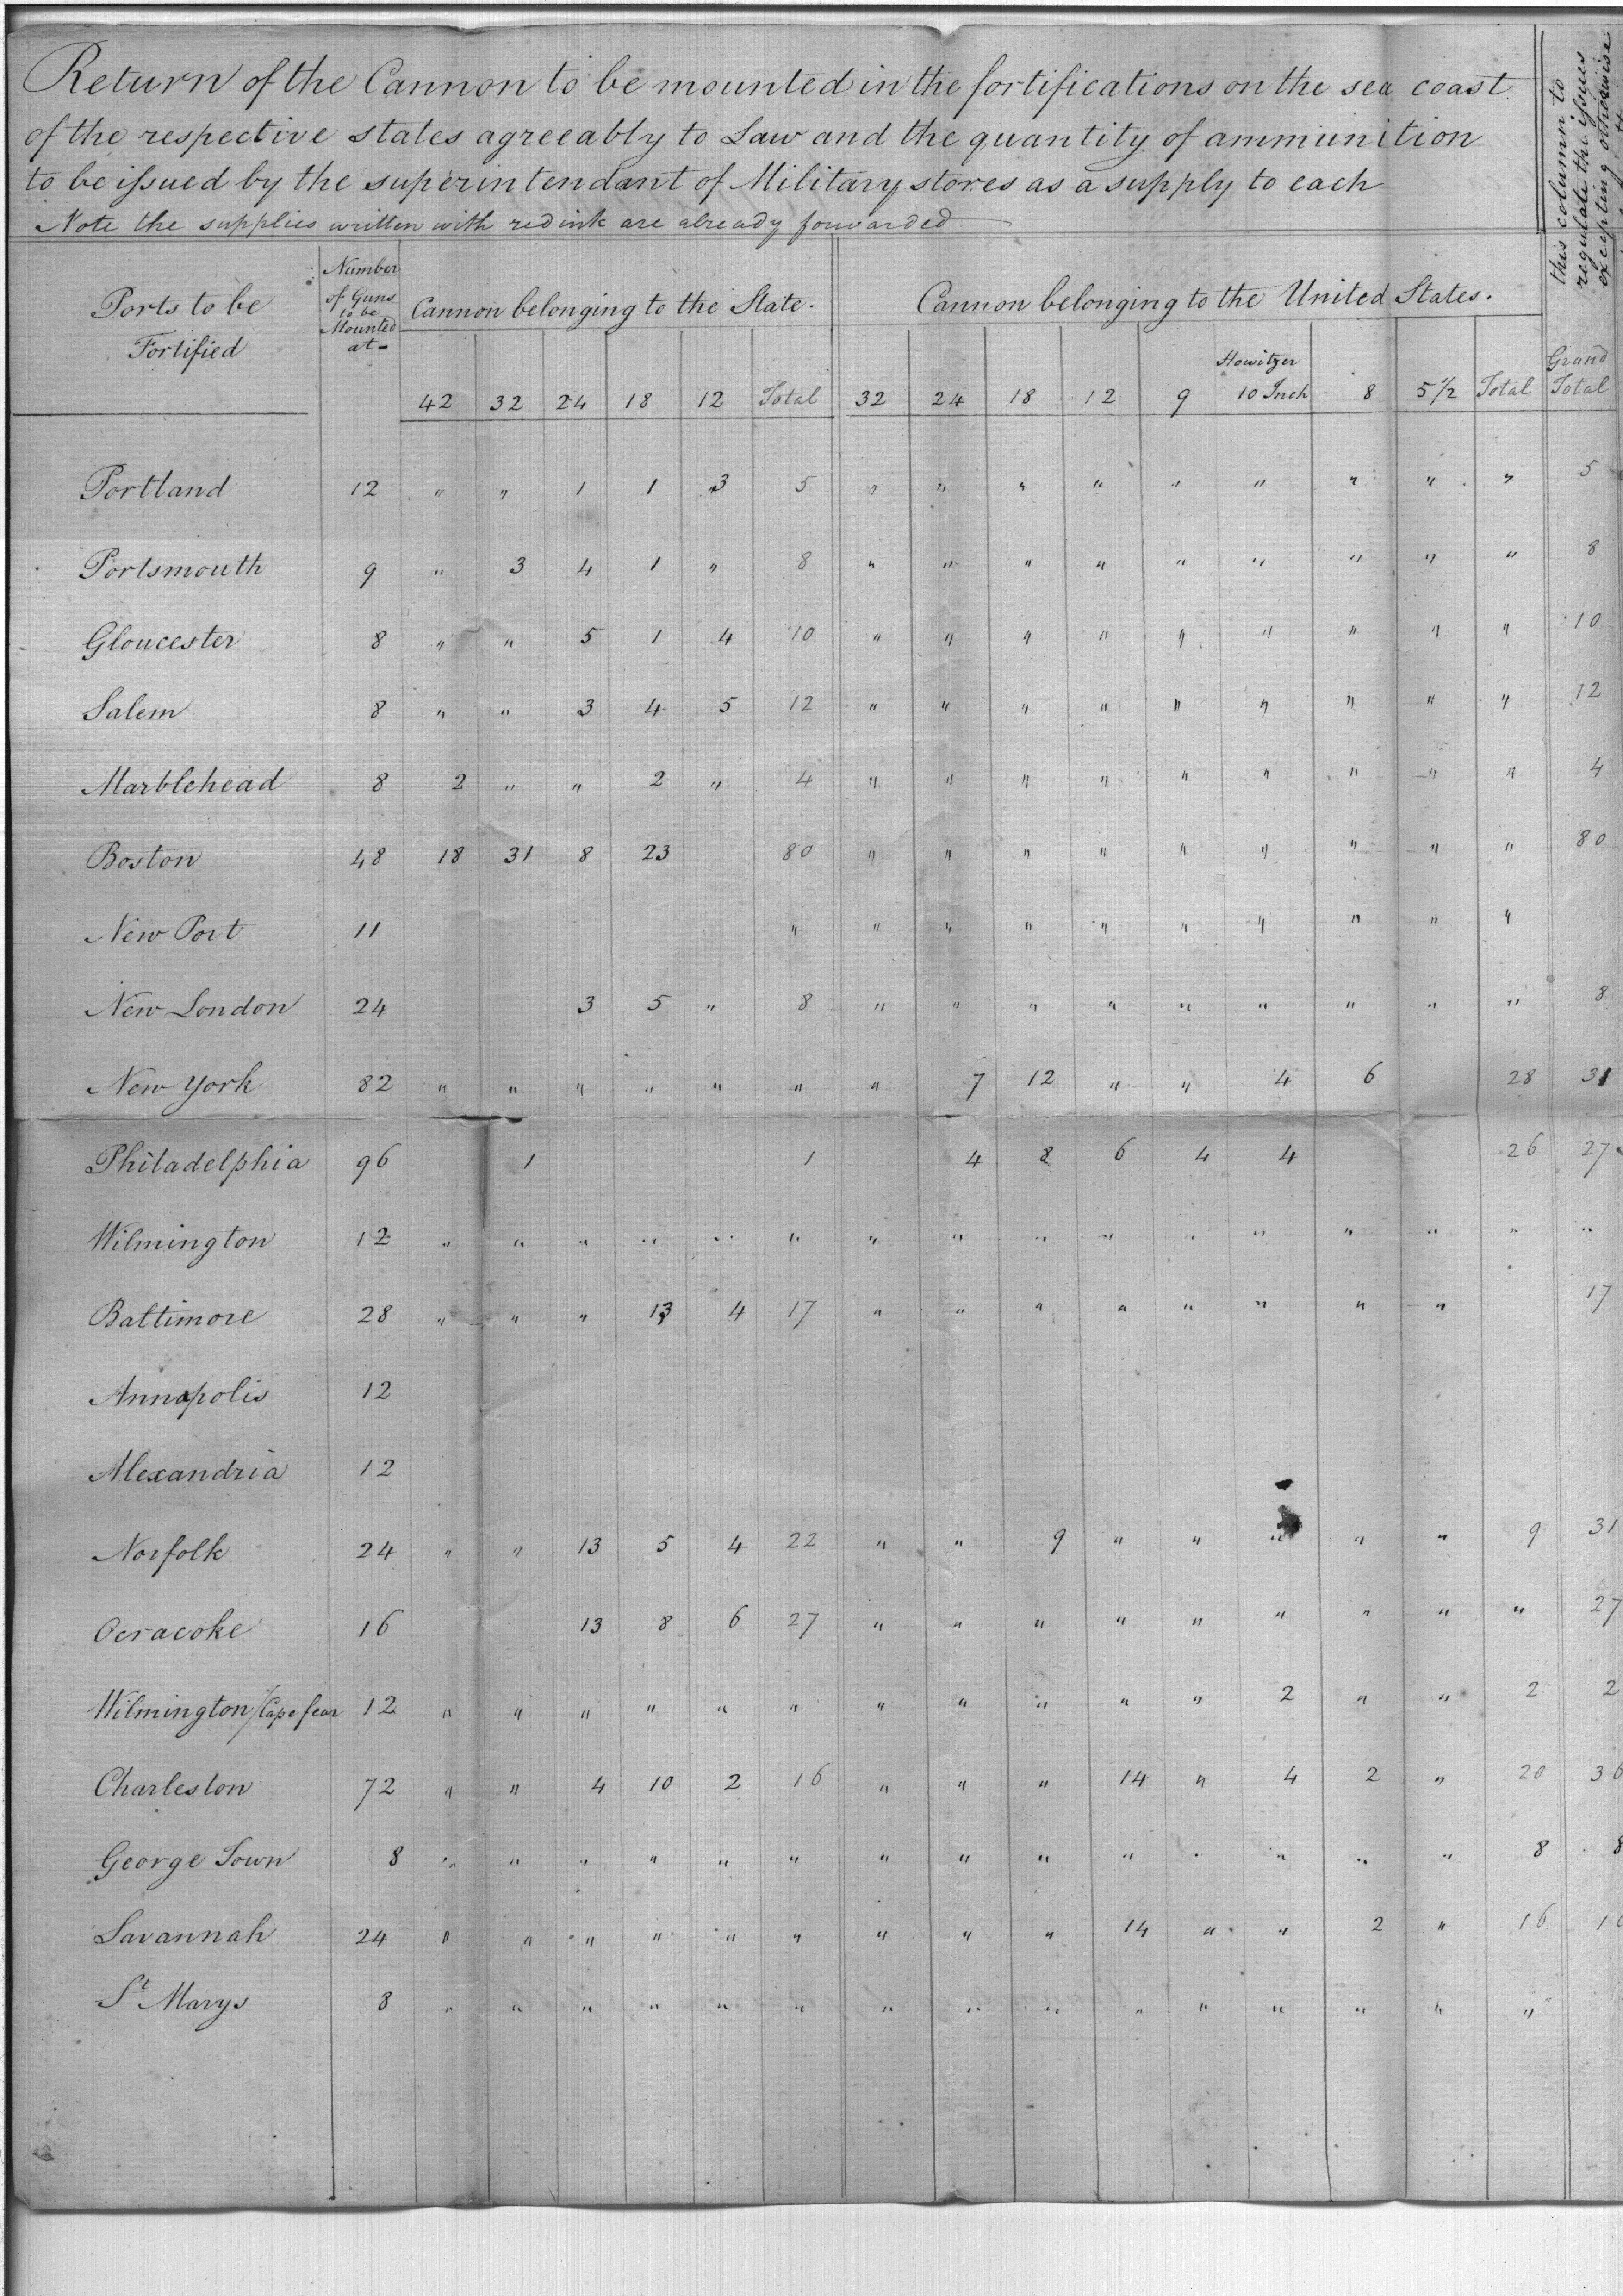 Return of the Cannon to be mounted in the fortifications on the sea coast
of the respective states agreeably to Law and the quantity of ammunition
to be issued by the superintendant of Military stores as a supply to each
Note the supplies written with red ink are already forwarded
this column to
regulate the issues
excepting otherwise
Ports to be Fortified
Number of Guns to be Mounted at-
Cannon belonging to the State.
Cannon belonging to the United States.
42 32 24 18 12 Total 32 24 18 12 9 Howitzer 10 Inch 8 5 1/2 Total Grand Total
Portland 12 " " 1 1 3 5 " " " " " " " " " 5
Portsmouth 9 " 3 4 1 " 8 " " " " " " " " " 8
Gloucester 8 " " 5 1 4 10 " " " " " " " " " 10
Salem 8 " " 3 4 5 12 " " " " " " " " " 12
Marblehead 8 2 " " 2 " 4 " " " " " " " " " 4
Boston 48 18 31 8 23 80 " " " " " " " " " 80
New Port 11 " " " " " " " " " "
New London 24 3 5 " 8 " " " " " " " " " 8
New York 82 " " " " " " " 7 12 " " 4 6 28 31
Philadelphia 96 1 1 4 8 6 4 4 26 27
Wilmington 12 " " " " " " " " " " " " " " " "
Baltimore 28 " " " 13 4 17 " " " " " " " " 17
Annapolis 12
Alexandria 12
Norfolk 24 " " 13 5 4 22 " " 9 " " " " " 9 31
Ocracoke 16 13 8 6 27 " " " " " " " " " 27
Wilmington/Cape fear 12 " " " " " " " " " " " 2 " " 2 2
Charleston 72 " " 4 10 2 16 " " " 14 " 4 2 " 20 36
George Town 8 " " " " " " " " " " " " " " 8 8
Savannah 24 " " " " " " " " " 14 " " 2 " 16
St Marys 8 " " " " " " " " " " " " " " "